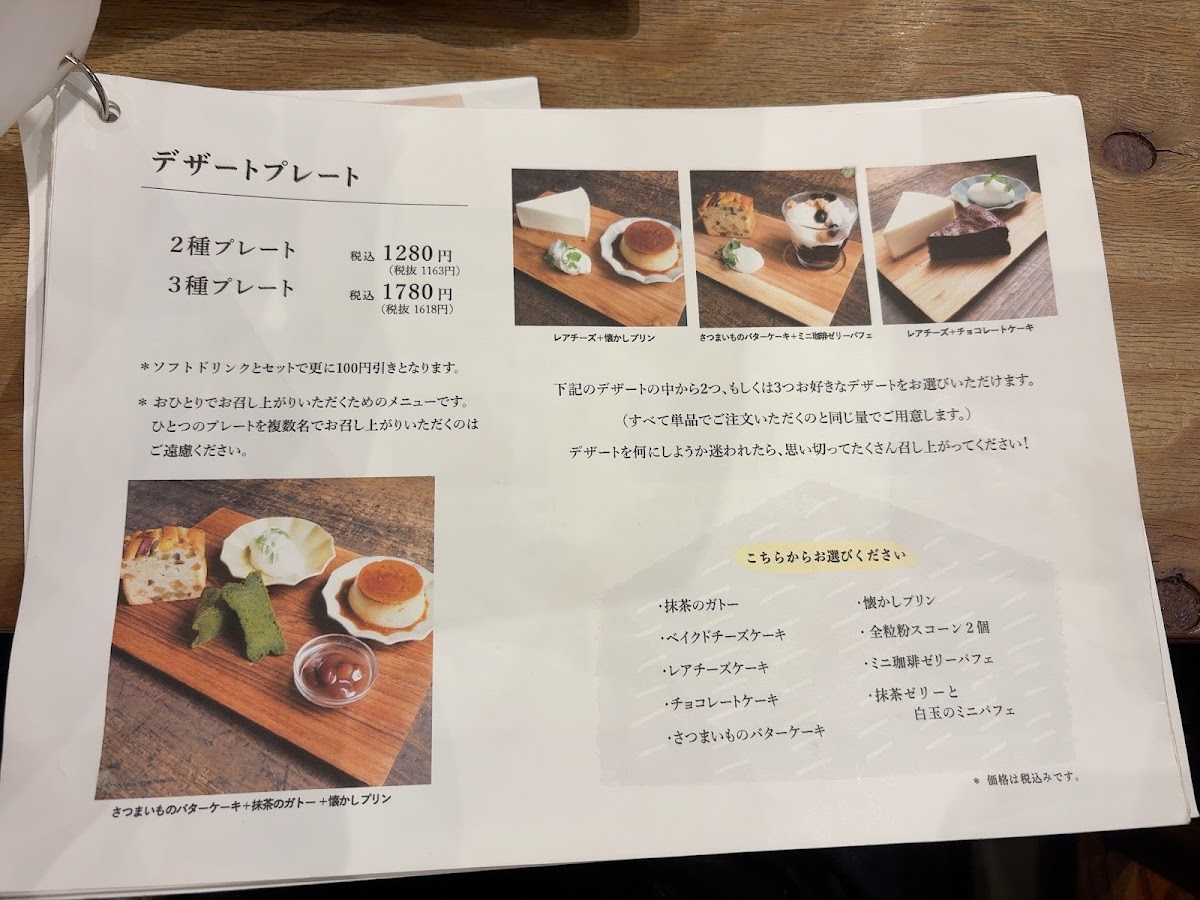 デザートプレート
2種プレート 税込 1280円
(税抜 1163円)
3種プレート 税込 1780円
(税抜 1618円)
＊ソフトドリンクとセットで更に100円引きとなります。
＊ おひとりでお召し上がりいただくためのメニューです。
ひとつのプレートを複数名でお召し上がりいただくのは
ご遠慮ください。
さつまいものバターケーキ＋抹茶のガトー＋懐かしプリン
レアチーズ＋懐かしプリン
さつまいものバターケーキ＋ミニ珈琲ゼリーパフェ
レアチーズ＋チョコレートケーキ
下記のデザートの中から2つ、もしくは3つお好きなデザートをお選びいただけます。
(すべて単品でご注文いただくのと同じ量でご用意します。)
デザートを何にしようか迷われたら、思い切ってたくさん召し上がってください！
こちらからお選びください
・抹茶のガトー
・ベイクドチーズケーキ
・レアチーズケーキ
・チョコレートケーキ
・さつまいものバターケーキ
・懐かしプリン
・全粒粉スコーン２個
・ミニ珈琲ゼリーパフェ
・抹茶ゼリーと
白玉のミニパフェ
＊ 価格は税込みです。